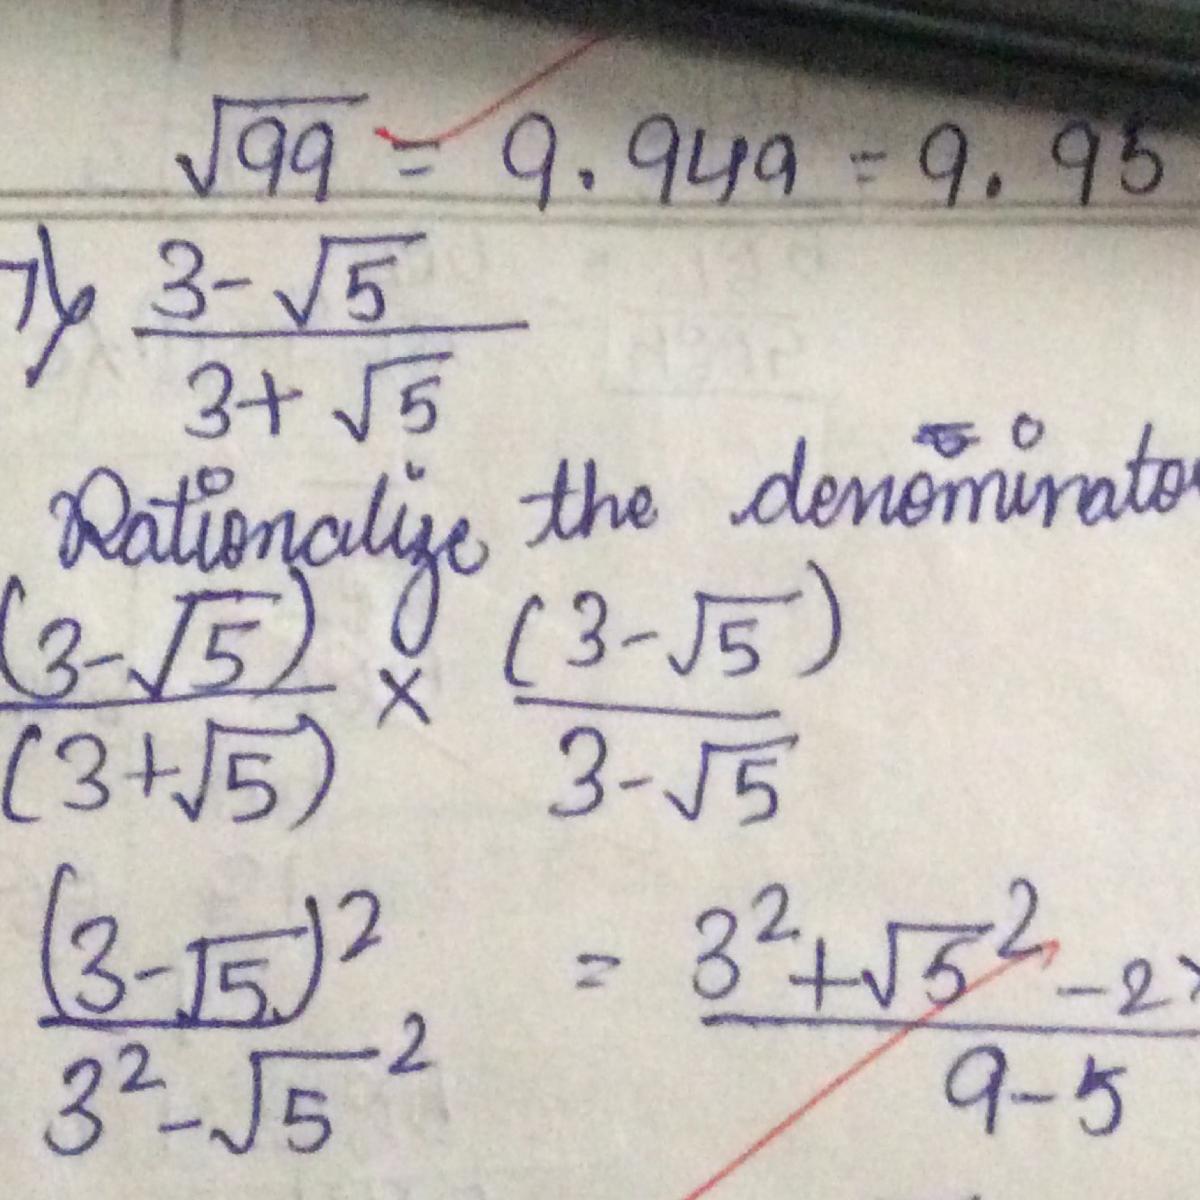 √99 = 9.949 = 9.95
7) 3-√5
3+√5
Rationalize the denominator
(3-√5) × (3-√5)
(3+√5) 3-√5
(3-√5)² = 3²+√5² -2×
3²-√5² 9-5